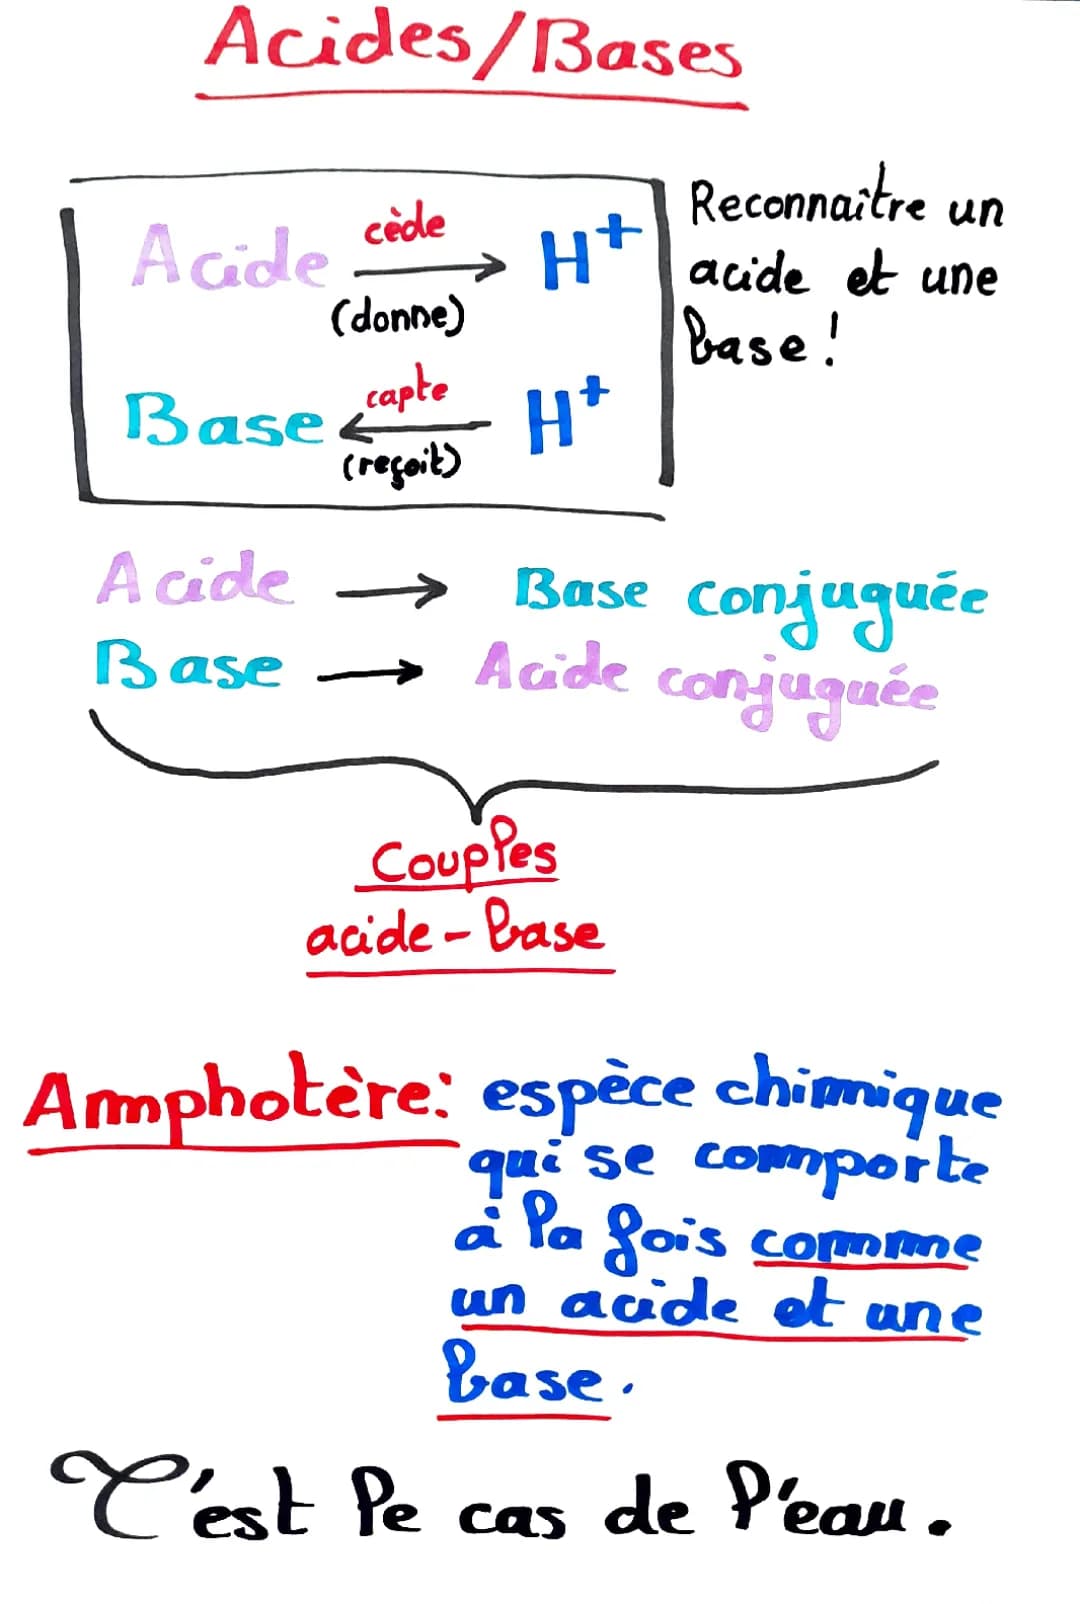 Acides/Bases
Acide cède (donne) H⁺
Base capte (reçoit) H⁺
Reconnaître un
acide et une
base !
Acide → Base conjuguée
Base → Acide conjuguée
Couples
acide - base
Amphotère : espèce chimique
qui se comporte
à la fois comme
un acide et une
base.
C'est le cas de l'eau.